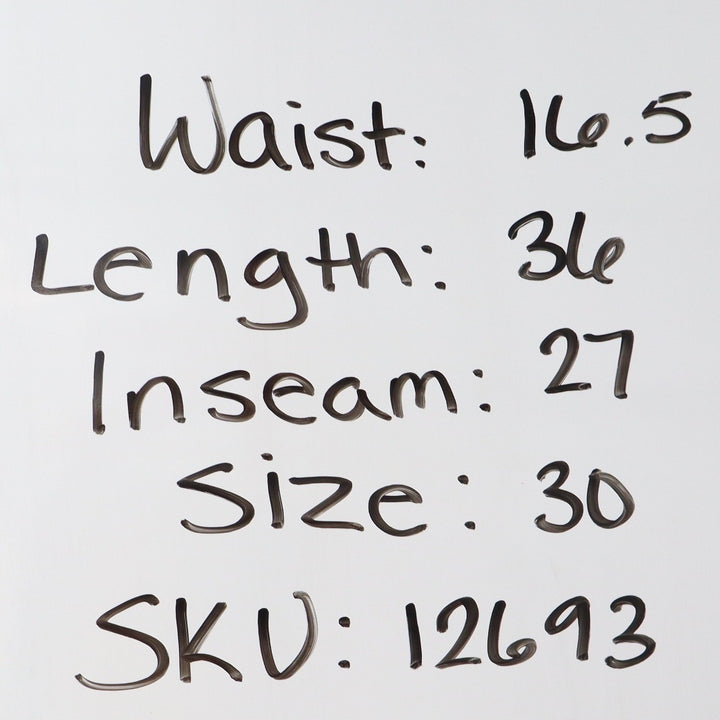 Waist: 16.5
Length: 36
Inseam: 27
Size: 30
SKU: 12693